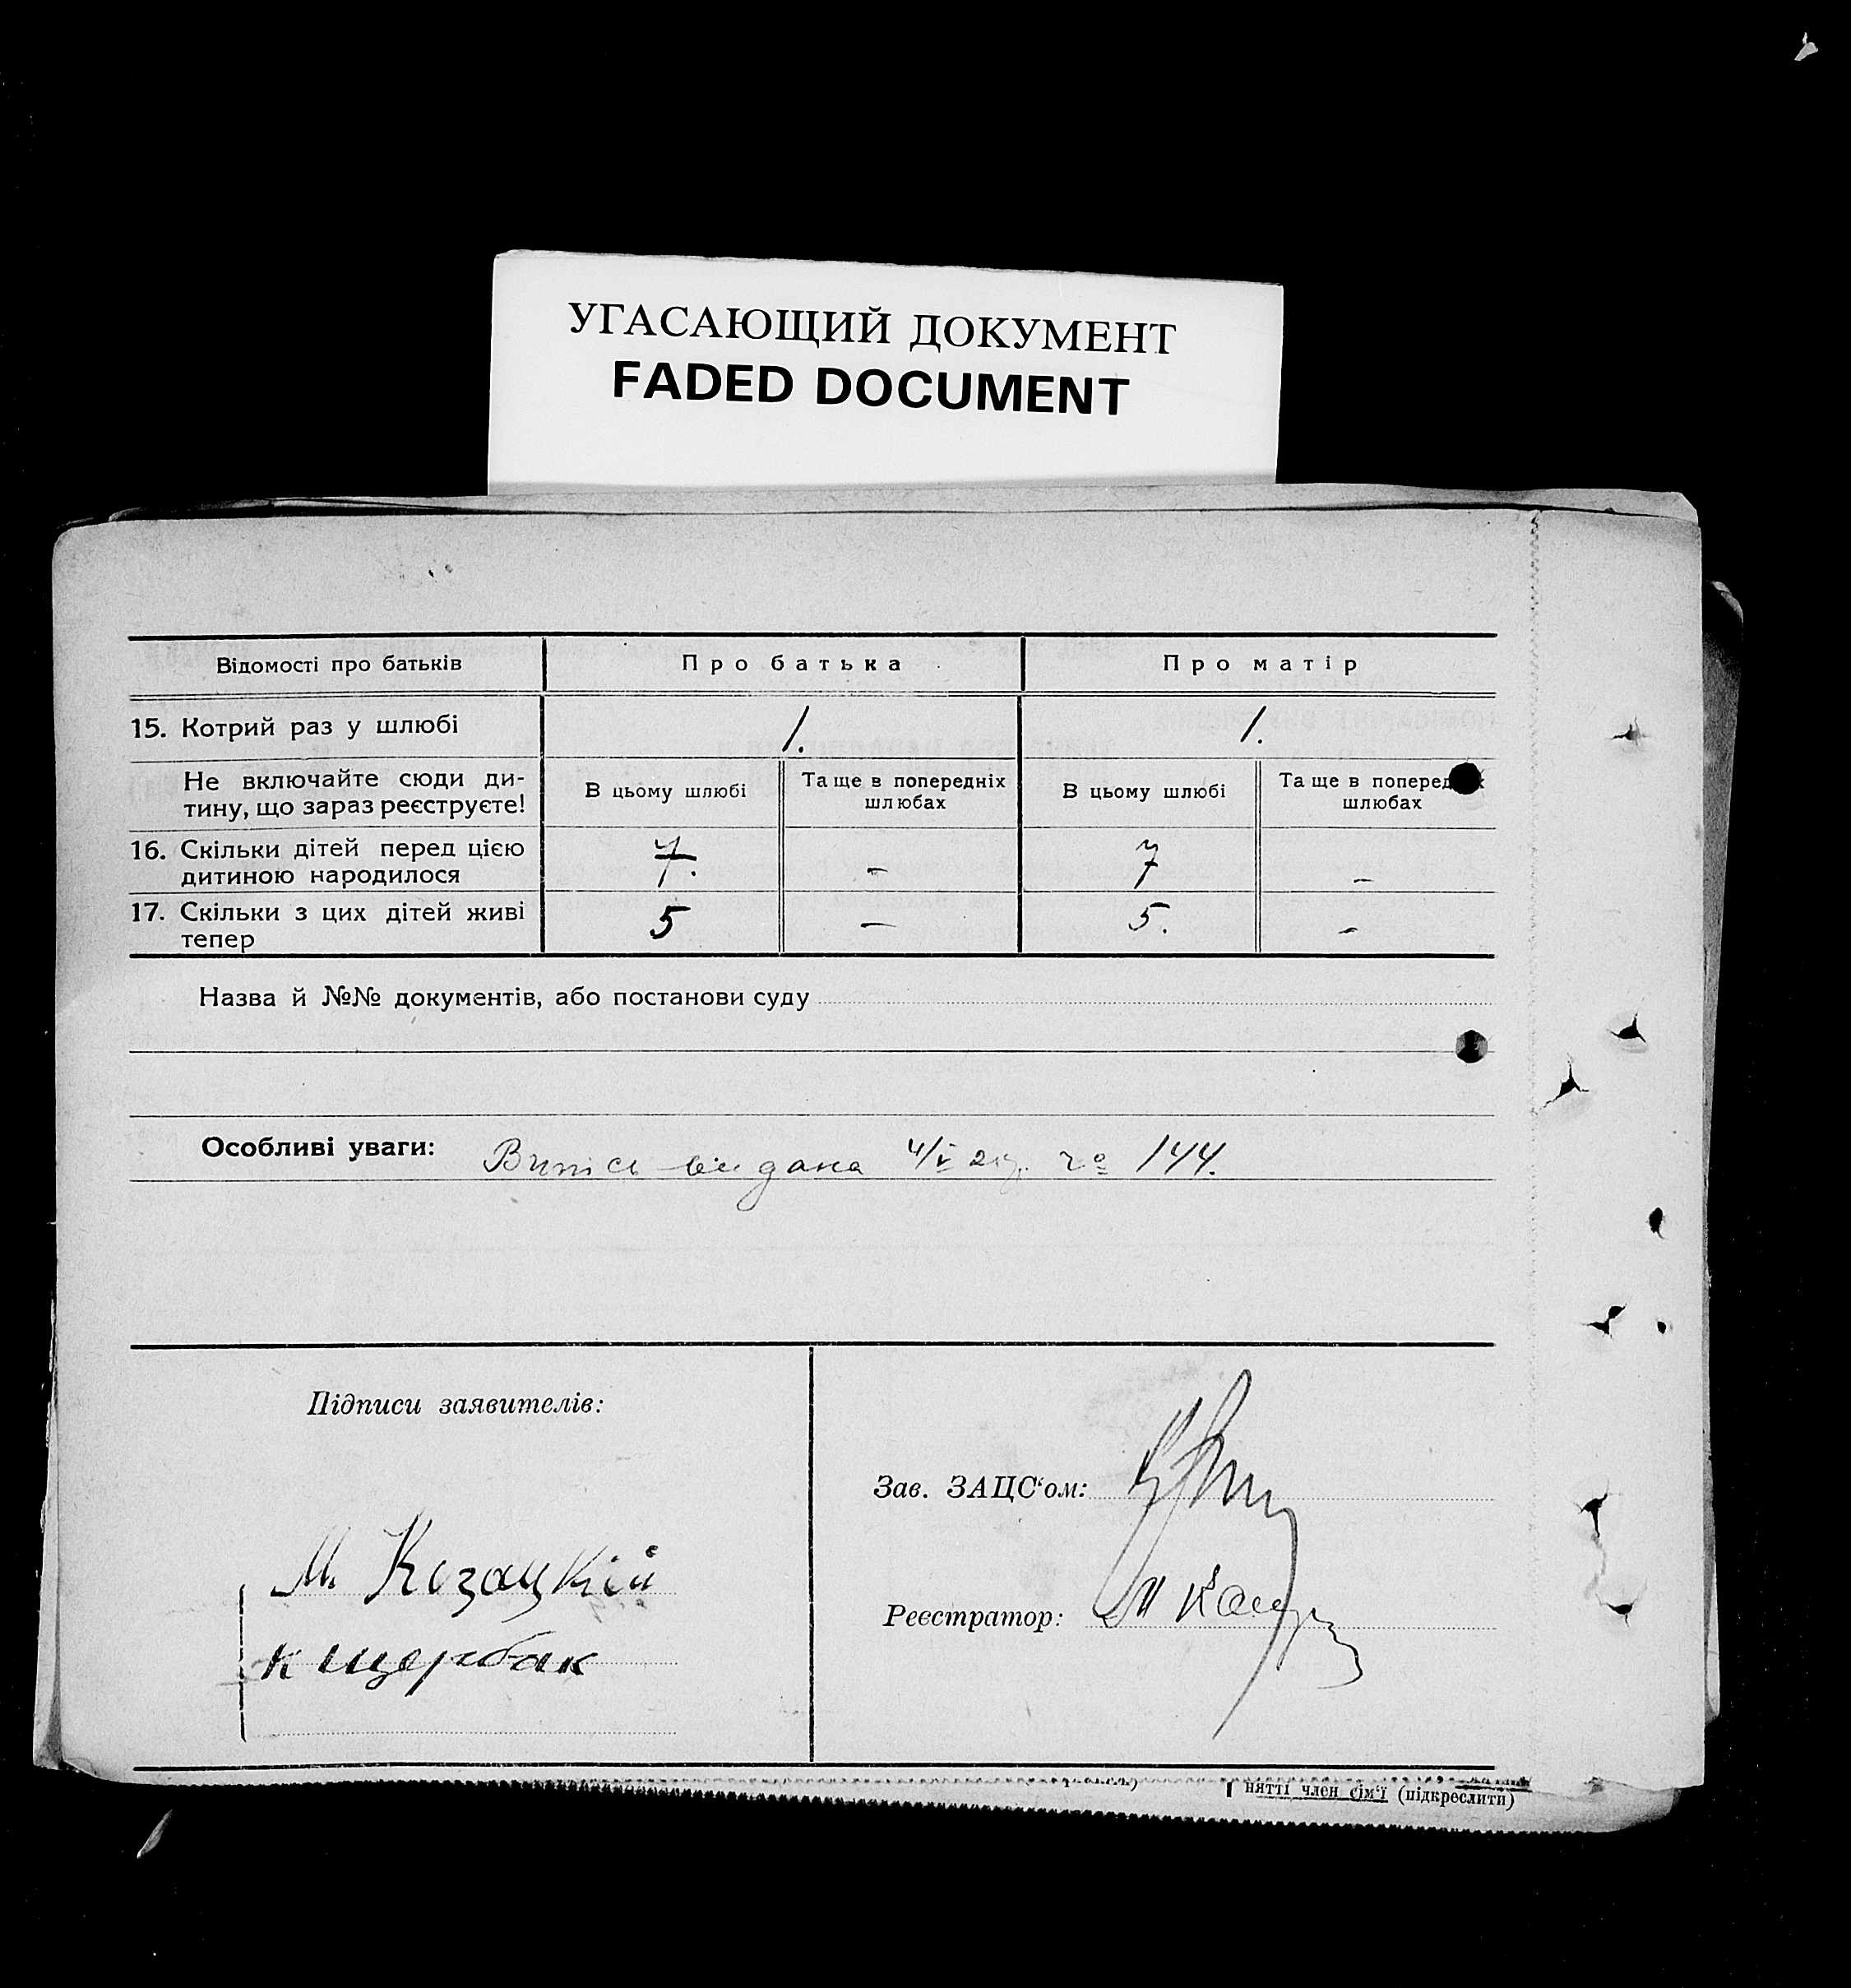 УГАСАЮЩИЙ ДОКУМЕНТ
FADED DOCUMENT
Відомості про батьків
Про батька
Про матір
15. Котрий раз у шлюбі
1.
1.
Не включайте сюди ди-
тину, що зараз реєструєте!
В цьому шлюбі
Та ще в попередніх
шлюбах
В цьому шлюбі
Та ще в поперед
шлюбах
16. Скільки дітей перед цією
дитиною народилося
7.
-
7
-
17. Скільки з цих дітей живі
тепер
5
-
5.
-
Назва й №№ документів, або постанови суду
Особливі уваги: Випись видана 4/V 144.
Підписи заявителів:
М. Козацкій
К Щербак
Зав. ЗАЦС‘ом:
Реєстратор: М
нятті член сім‘ї (підкреслити)